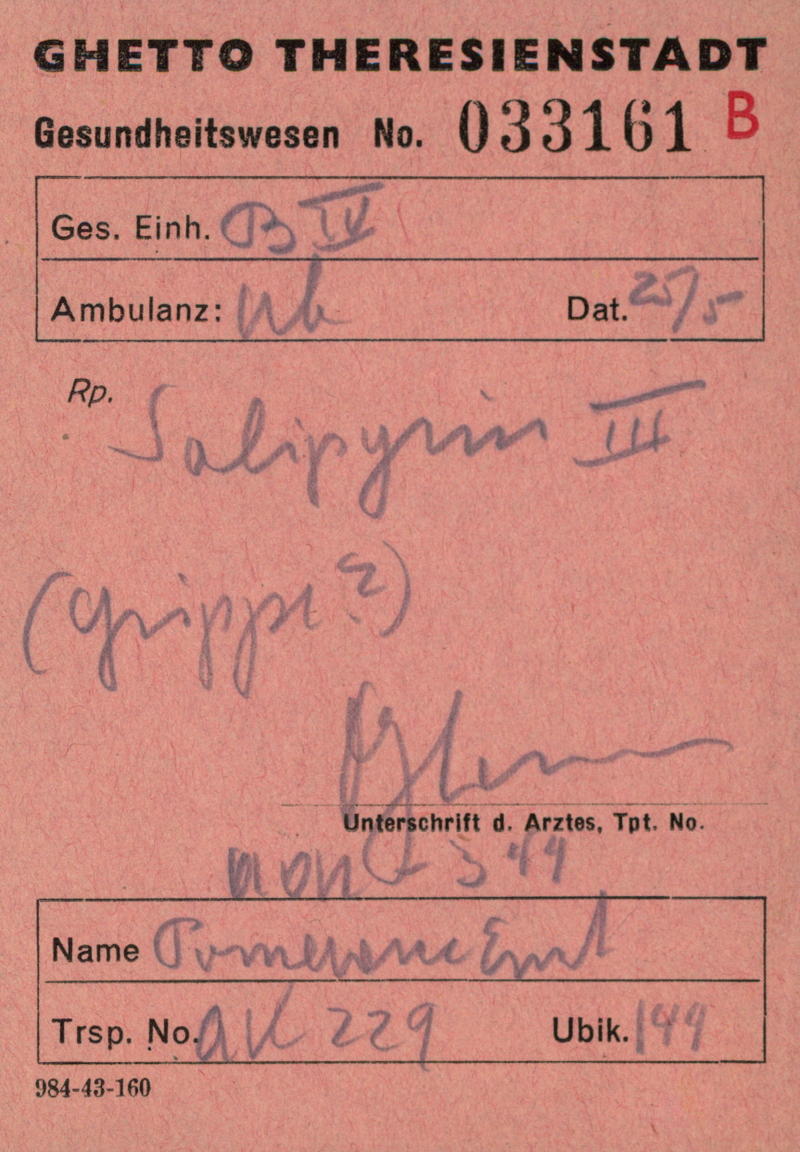 GHETTO THERESIENSTADT
Gesundheitswesen No. 033161 B
Ges. Einh. B IV
Ambulanz: Dat. 25/5
Rp.
Salipyrin III
(Grippe?)
Unterschrift d. Arztes, Tpt. No.
Name Ernst
Trsp. No. AK 229 Ubik.
984-43-160